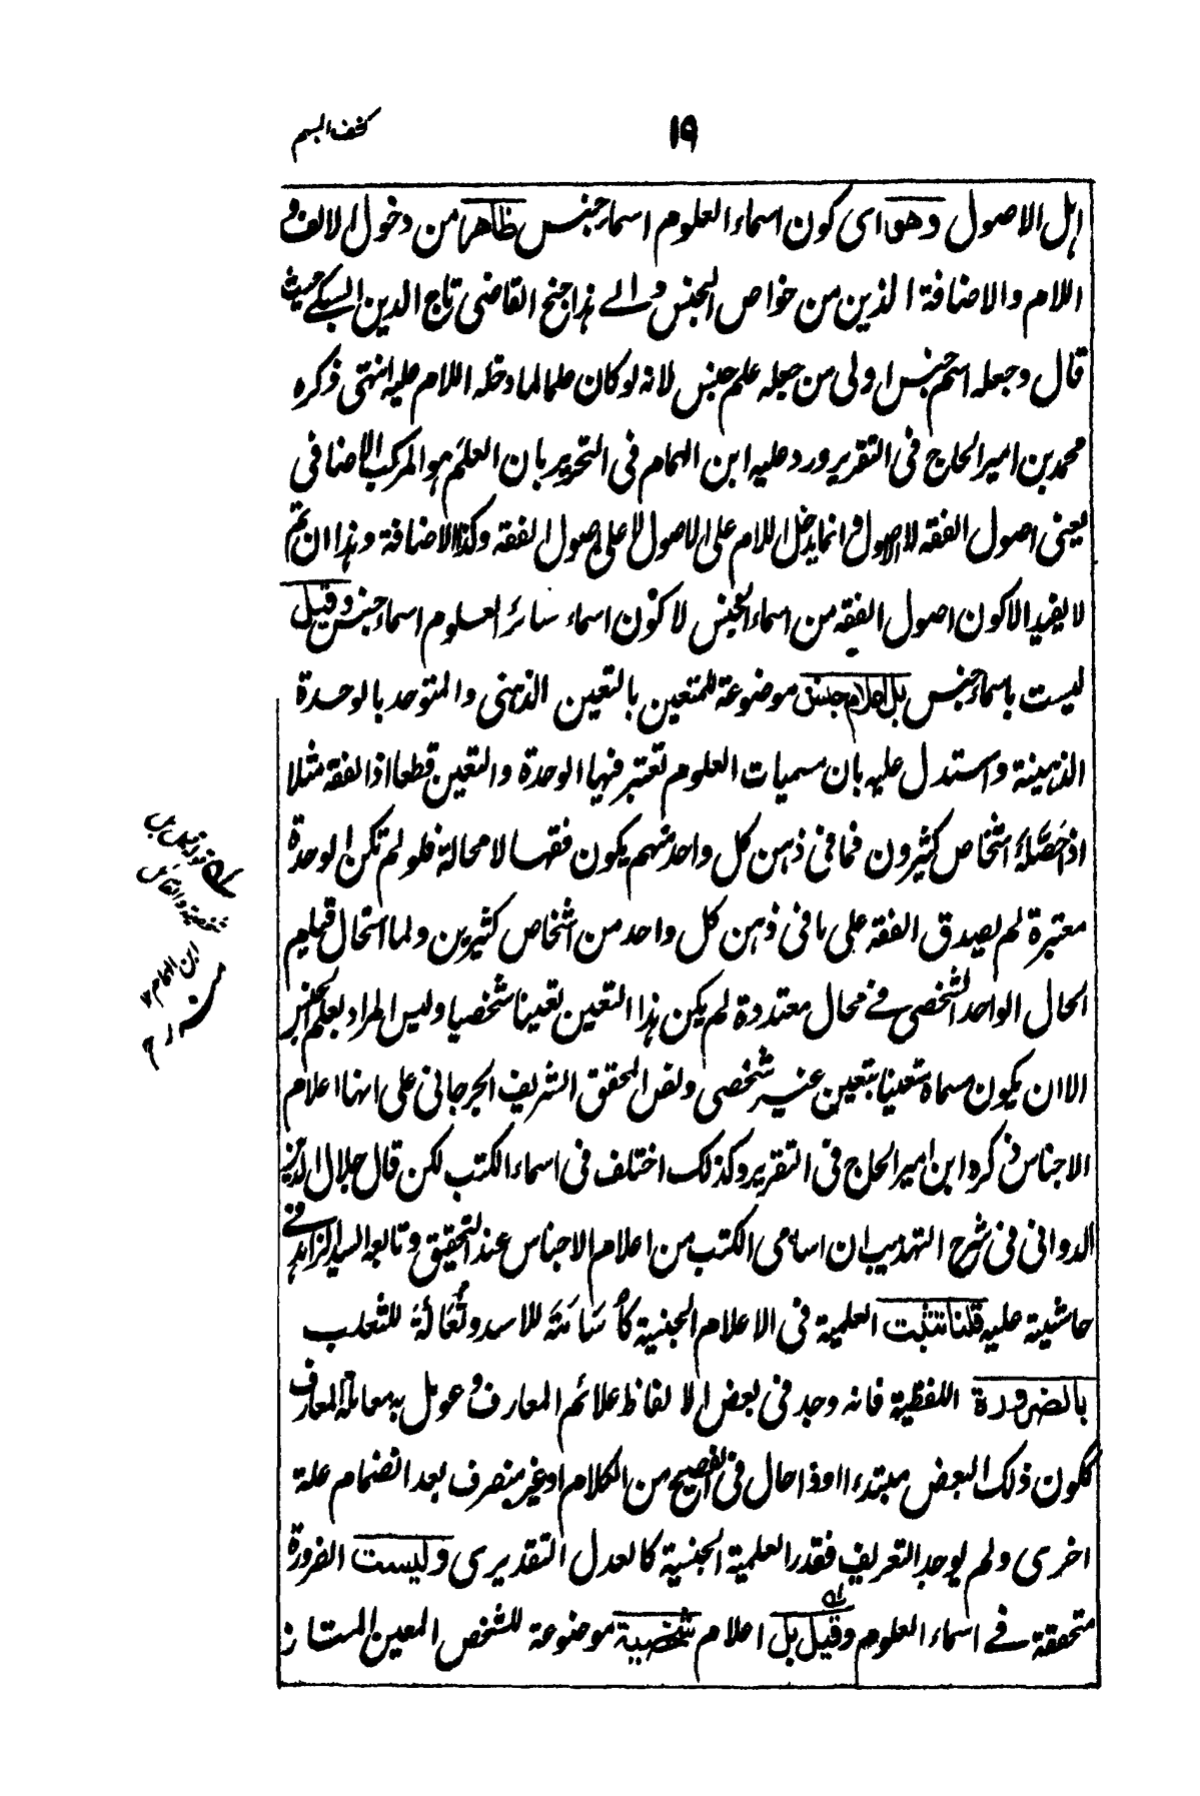 ١٩
كشف المبهم
اهل الاصول وهو اى كون اسماء العلوم اسماء جنس ظاهر من دخول الالف و
اللام والاضافة الذين من خواص الجنس والے هذا جنح القاضى تاج الدين السبكے حيث
قال وجعله اسم جنس اولى من جعله علم جنس لانه لو كان علما لما دخله اللام عليه انتهى ذكره
محمد بن امير الحاج فى التقرير ورد عليه ابن الهمام فى التحرير بان العلم هو المركب الاضافى
يعنى اصول الفقه لا الاصول وانما يدخل اللام على الاصول لا على اصول الفقه وكذا الاضافة وهذا ان تم
لا يفيد الا كون اصول الفقه من اسماء الجنس لا كون اسماء سائر العلوم اسماء جنس وقيل
ليست باسماء جنس بل اعلام جنس موضوعة للمتعين بالتعين الذهنى والمتوحد بالوحدة
الذهنية واستدل عليه بان مسميات العلوم تعتبر فيها الوحدة والتعين قطعا اذ الفقه مثلا
اذ حصله اشخاص كثيرون فما فى ذهن كل واحد منهم يكون فقها لا محالة فلو لم تكن الوحدة
معتبرة لم يصدق الفقه على ما فى ذهن كل واحد من اشخاص كثيرين ولما استحال قيام
الحال الواحد الشخصى فے محال متعددة لم يكن هذا التعين تعينا شخصيا وليس المراد بعلم الجنس
الا ان يكون مسماه متعينا بتعين غير شخصى ونص المحقق الشريف الجرجانى على انها اعلام
الاجناس ذكره ابن امير الحاج فى التقرير وكذلك اختلف فى اسماء الكتب لكن قال جلال الدين
الدوانى فى شرح التهذيب ان اسامى الكتب من اعلام الاجناس عند التحقيق وتابعه السيد الزاهد فے
حاشية عليه قلنا تثبت العلمية فى الاعلام الجنسية كاُسَامَة للاسد وثُعَالَة للثعلب
بالضرورة اللفظية فانه وجد فى بعض الالفاظ علائم المعارف وعومل به معاملة المعارف
ككون ذلك البعض مبتدءا او ذا حال فى الفصيح من الكلام او غير منصرف بعد انضمام علة
اخرى ولم يوجد التعريف فقدر العلمية الجنسية كالعدل التقديرى وليست الضرورة
متحققة فے اسماء العلوم وقيل بل اعلام شخصية موضوعة للشخص المعين الممتاز
له قوله وقيل بل
شخصية والقائل
ابن الهمام ١٢
منه رح